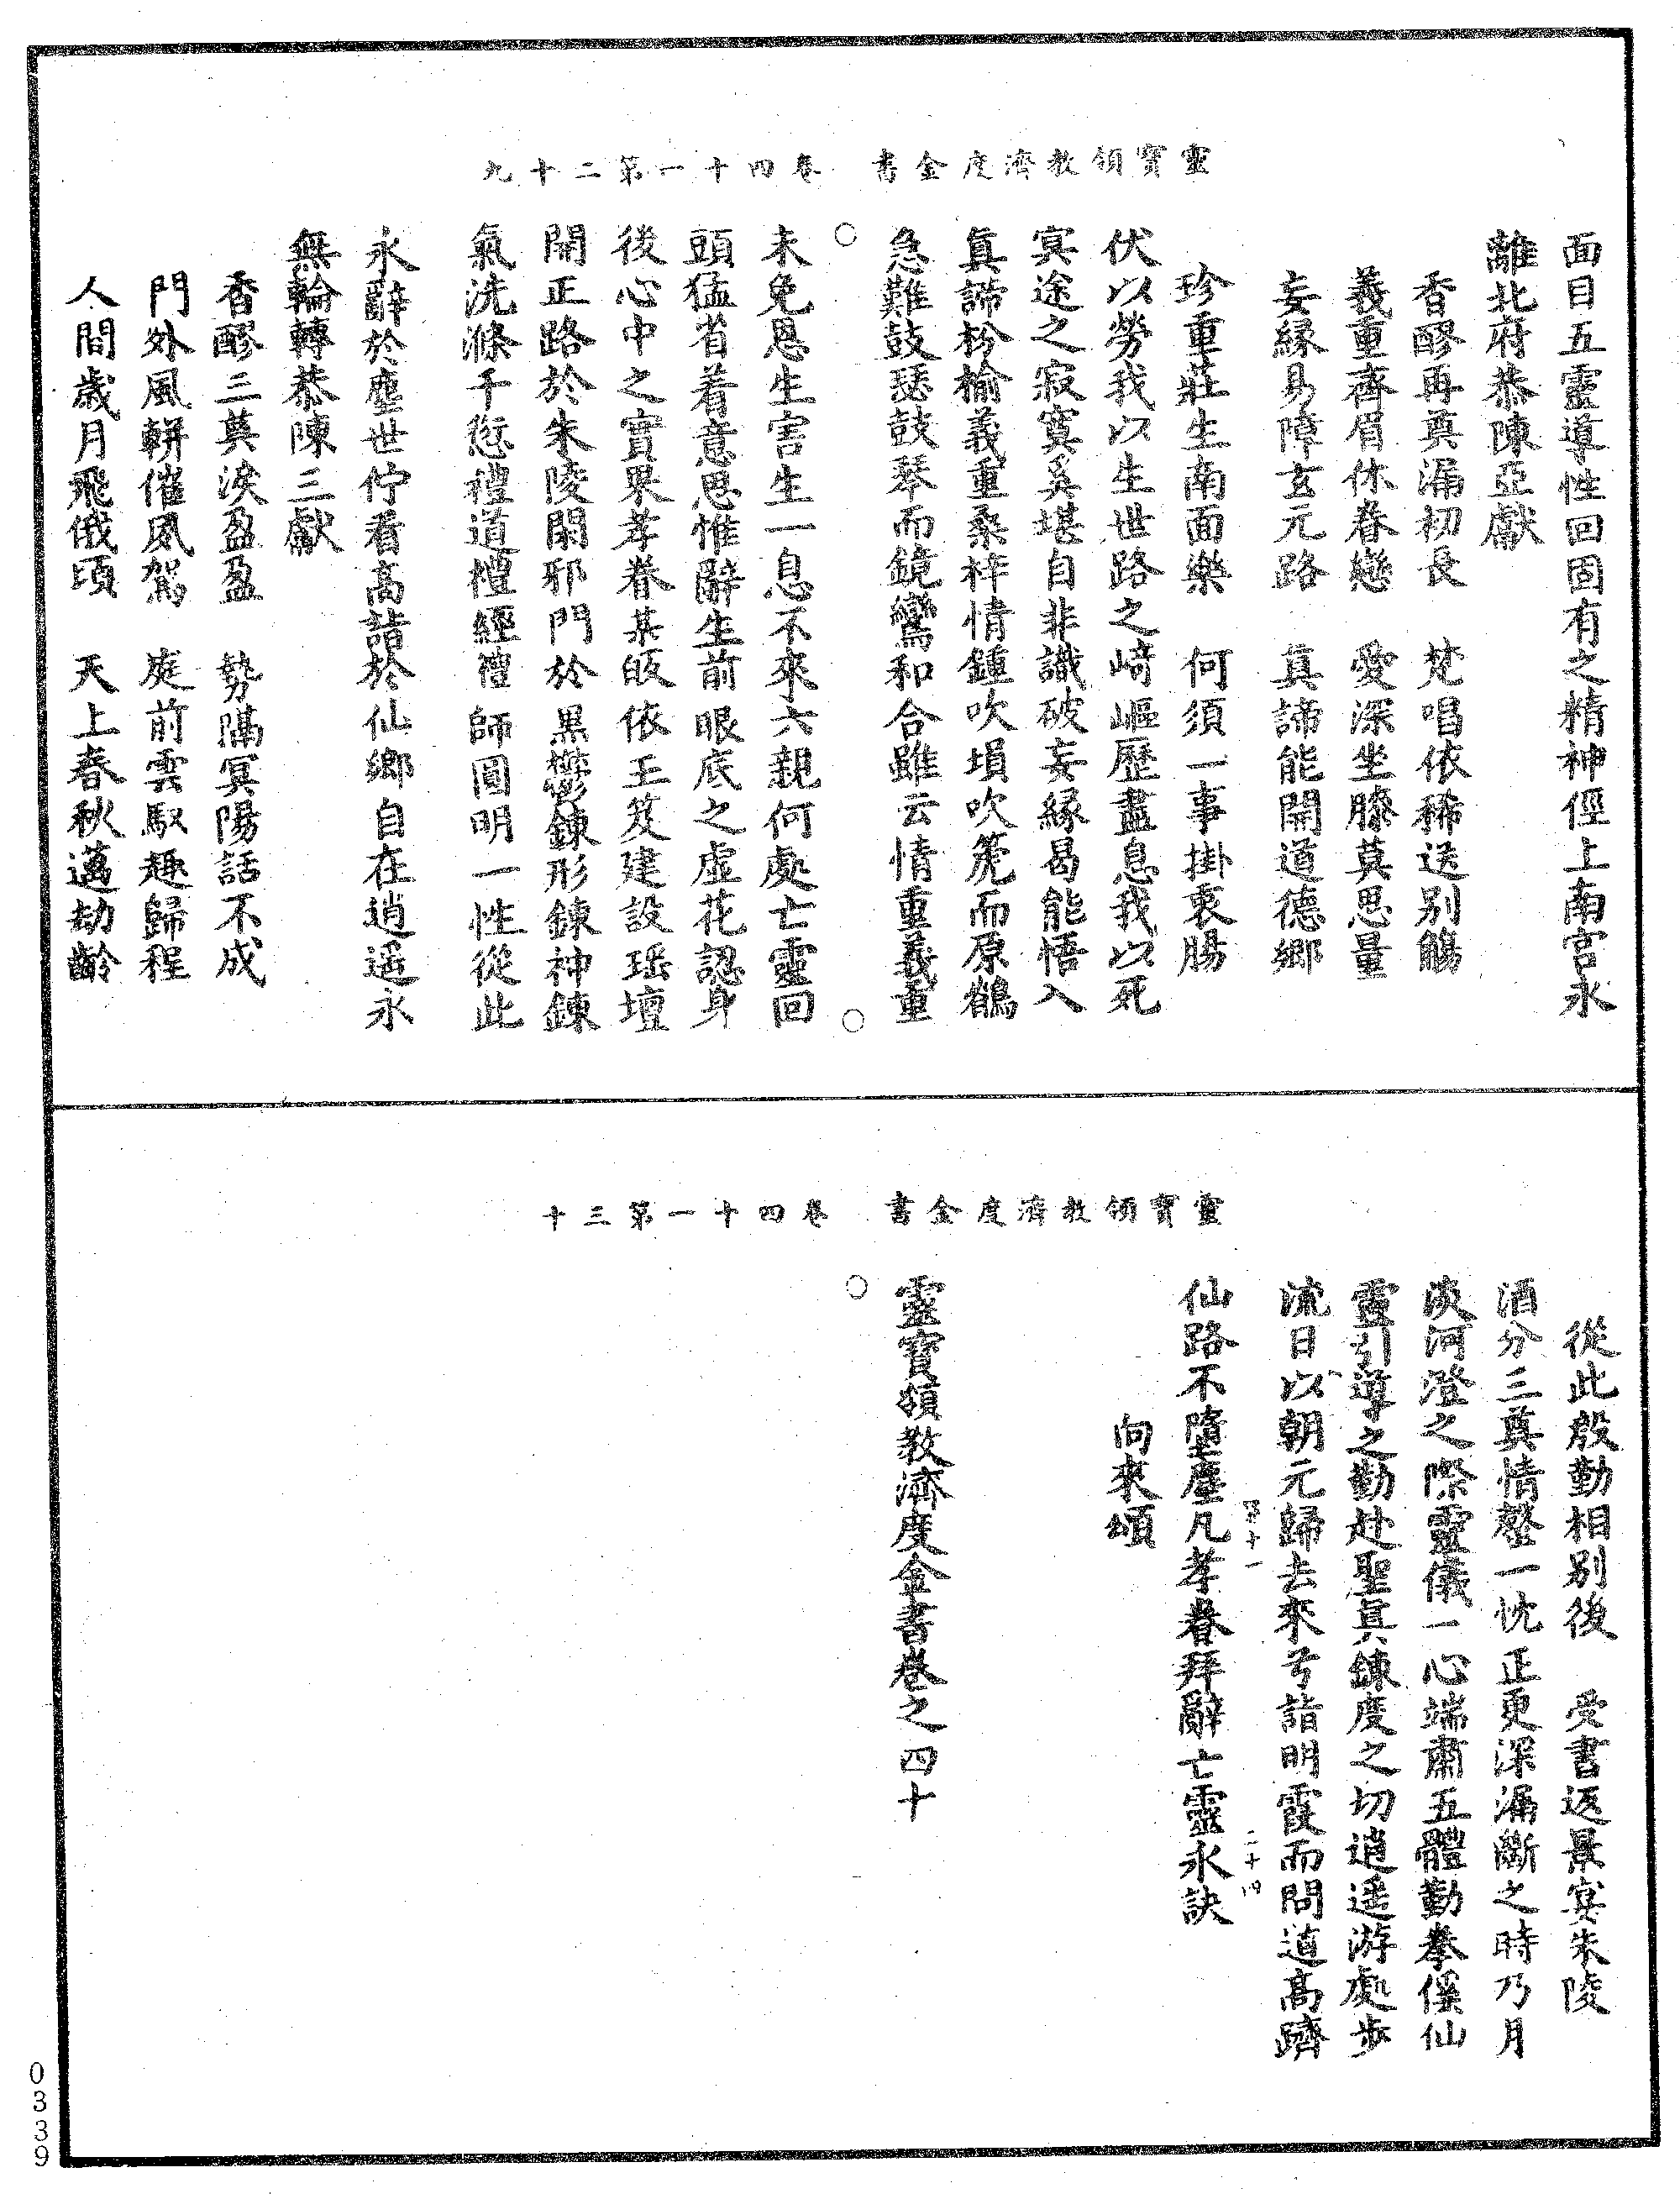 靈寶領教濟度金書　卷四十一第二十九
面目五靈導性回固有之精神徑上南宮永
離北府恭陳亞獻
香醪再奠漏初長　梵唱依稀送別觴
義重齊眉休眷戀　愛深坐膝莫思量
妄緣易障玄元路　真諦能開道德鄉
珍重莊生南面樂　何須一事掛衷腸
伏以勞我以生世路之﨑嶇歷盡息我以死
冥途之寂寞奚堪自非識破妄緣曷能悟入
真諦枌榆義重桑梓情鍾吹塤吹箎而原鶺
急難鼓瑟鼓琴而鏡鸞和合雖云情重義重
未免恩生害生一息不來六親何處亡靈回
頭猛省着意思惟辭生前眼底之虛花認身
後心中之實果孝眷某皈依玉笈建設瑶壇
開正路於朱陵閉邪門於黑鬱鍊形鍊神鍊
氣洗滌千愆禮道禮經禮師圓明一性從此
永辭於塵世佇看高詣於仙鄉自在逍遥永
無輪轉恭陳三獻
香醪三奠淚盈盈　勢隔冥陽話不成
門外風軿催夙駕　庭前雲馭趣歸程
人間歲月飛俄頃　天上春秋邁劫齡
靈寶領教濟度金書　卷四十一第三十
從此殷勤相別後　受書返景宴朱陵
酒分三奠情罄一忱正更深漏斷之時乃月
淡河澄之際靈儀一心端肅五體勤拳徯仙
靈引導之勤赴聖真鍊度之切逍遥游處步
流日以朝元歸去來兮詣明霞而問道高躋
仙路不墮塵凡孝眷拜辭亡靈永訣
向來頌
靈寶領教濟度金書卷之四十
0339